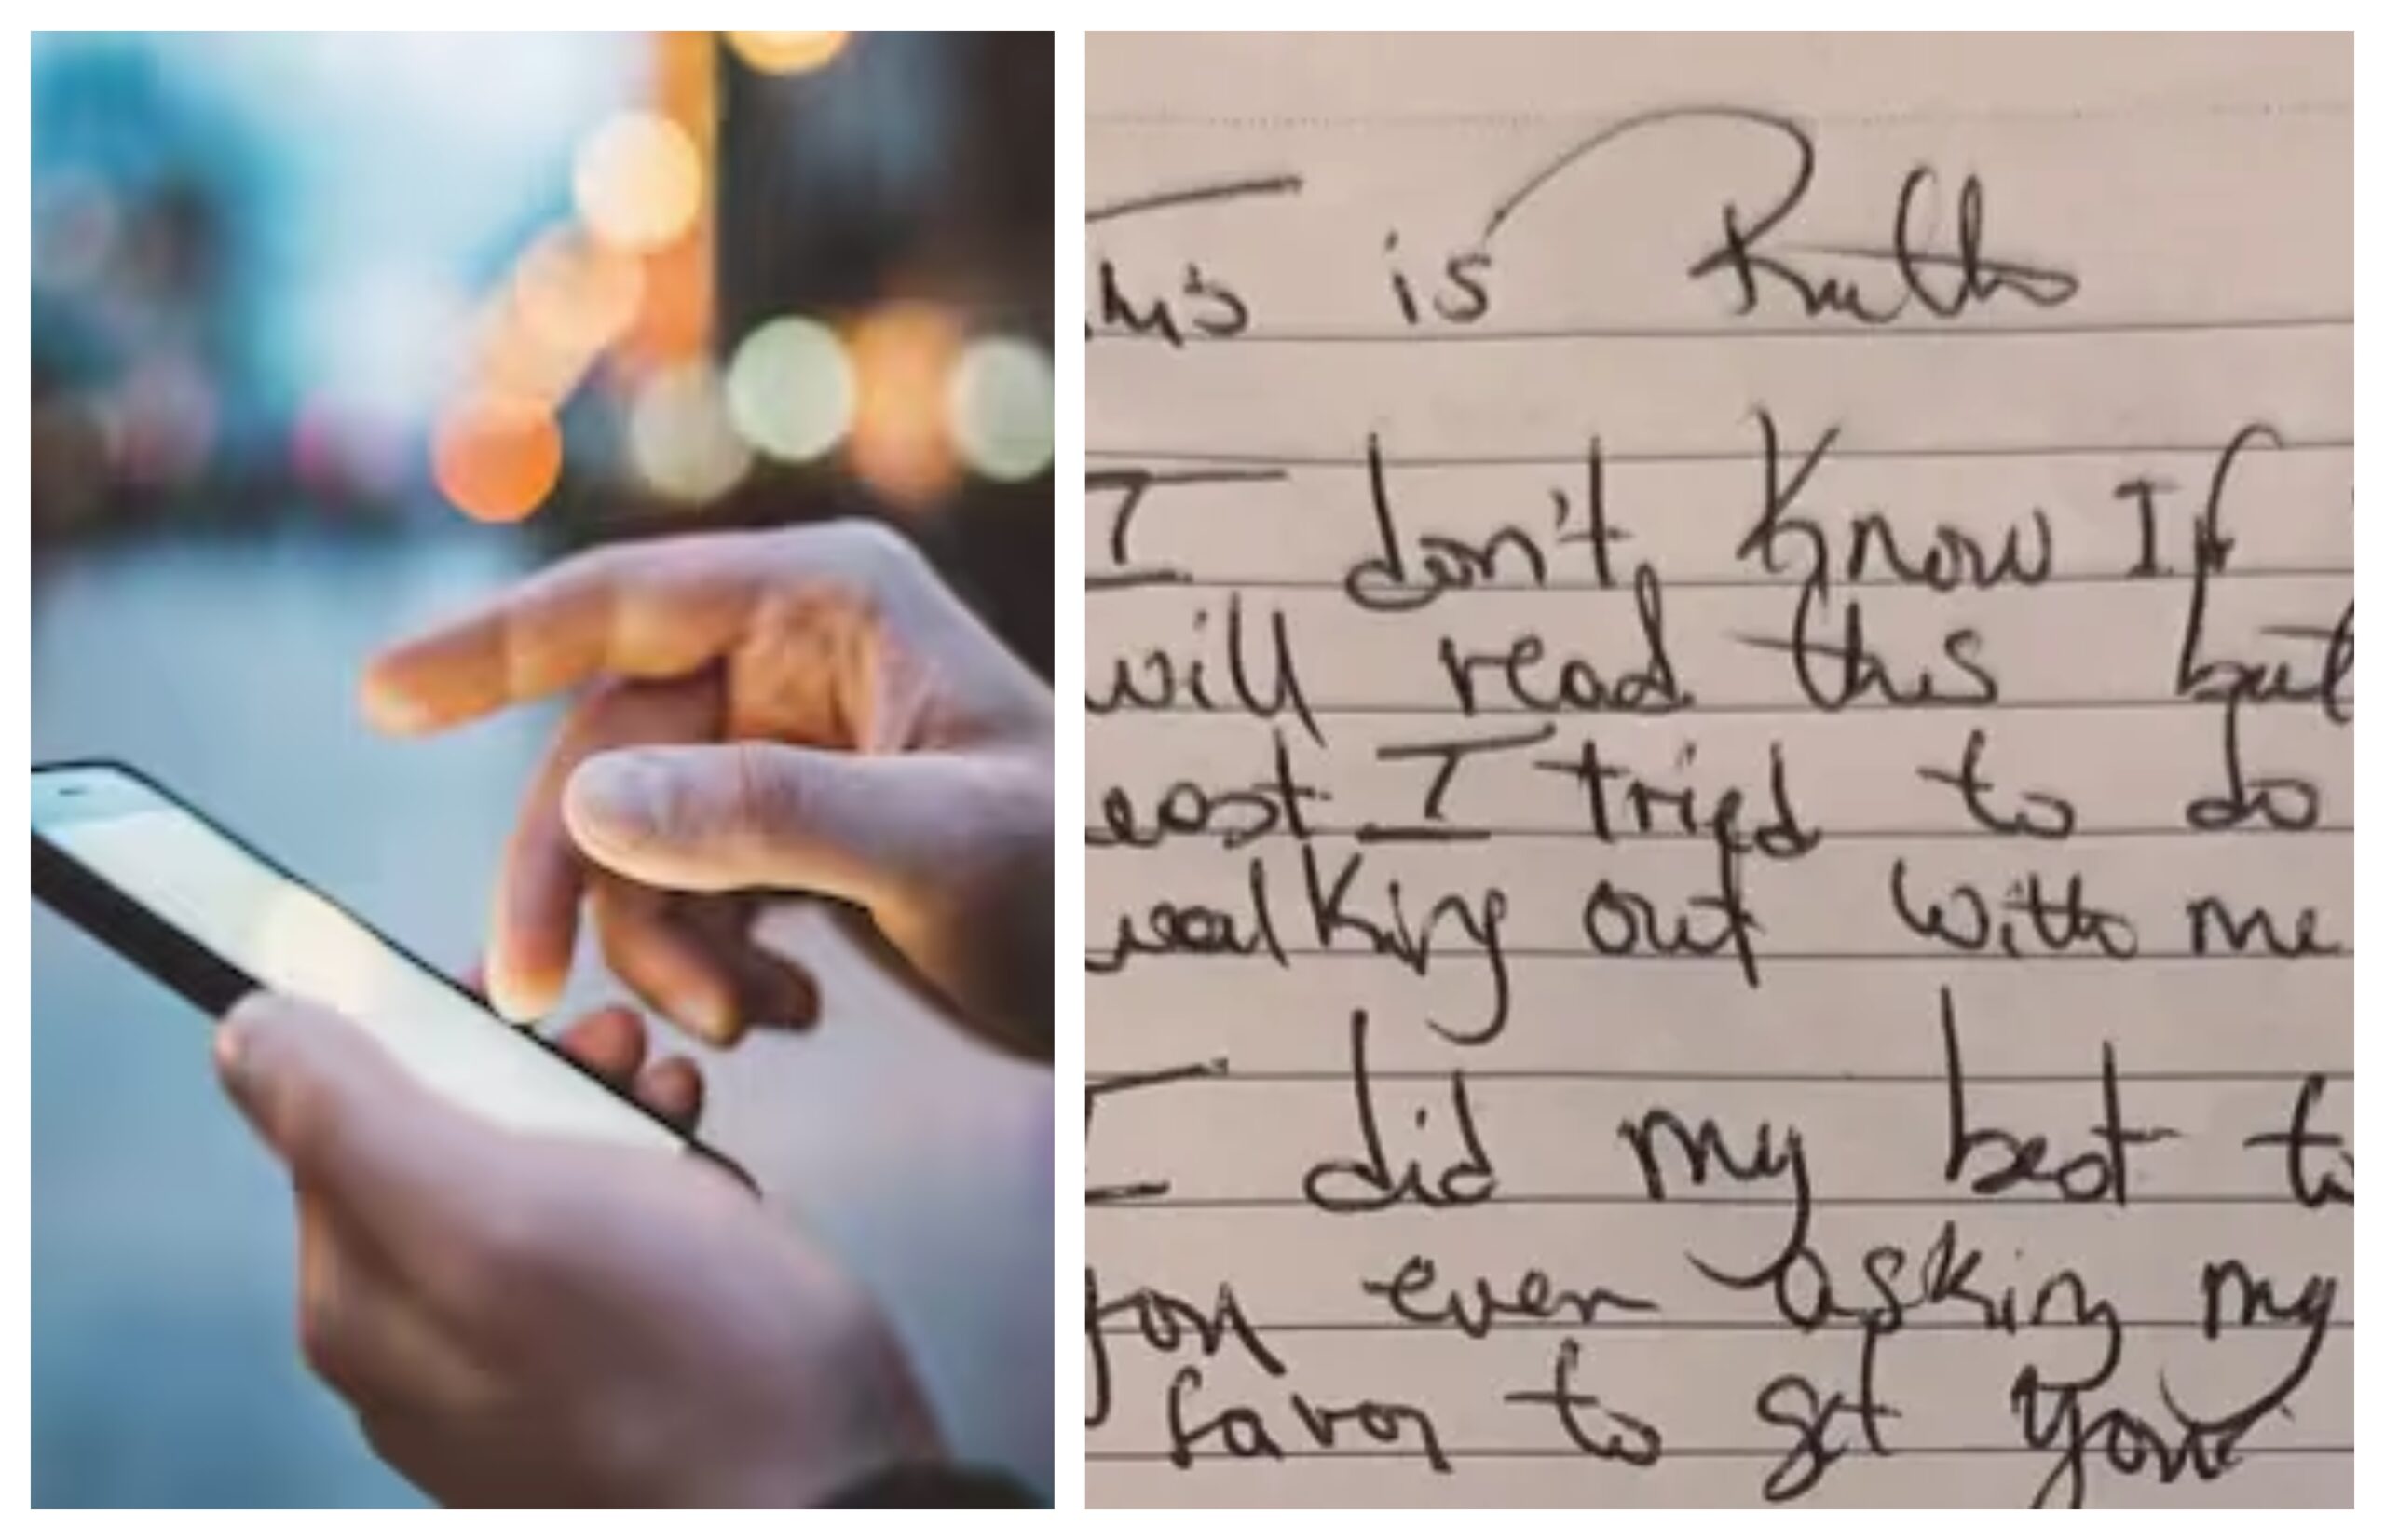 This is Ruth
I don't know If
will read this but
least I tried to do
walking out with me
I did my best to
you even asking my
favor to get your